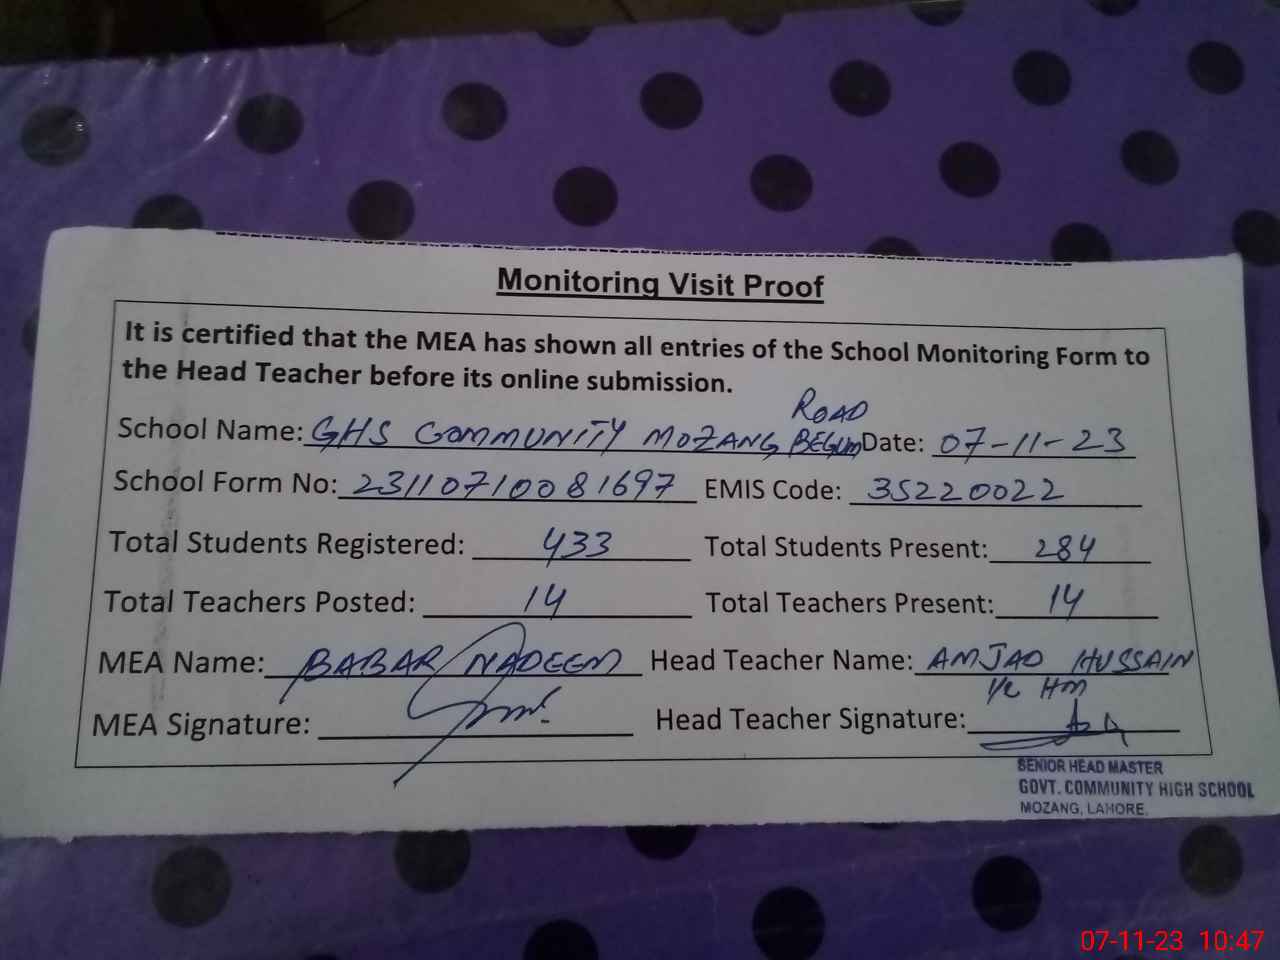 Monitoring Visit Proof
It is certified that the MEA has shown all entries of the School Monitoring Form to
the Head Teacher before its online submission.
School Name: GHS COMMUNITY MOZANG BEGUM ROAD Date: 07-11-23
School Form No: 23110710081697 EMIS Code: 35220022
Total Students Registered: 433 Total Students Present: 284
Total Teachers Posted: 14 Total Teachers Present: 14
MEA Name: BABAR NADEEM Head Teacher Name: AMJAD HUSSAIN
I/C HM
MEA Signature: Head Teacher Signature:
SENIOR HEAD MASTER
GOVT. COMMUNITY HIGH SCHOOL
MOZANG, LAHORE.
07-11-23 10:47